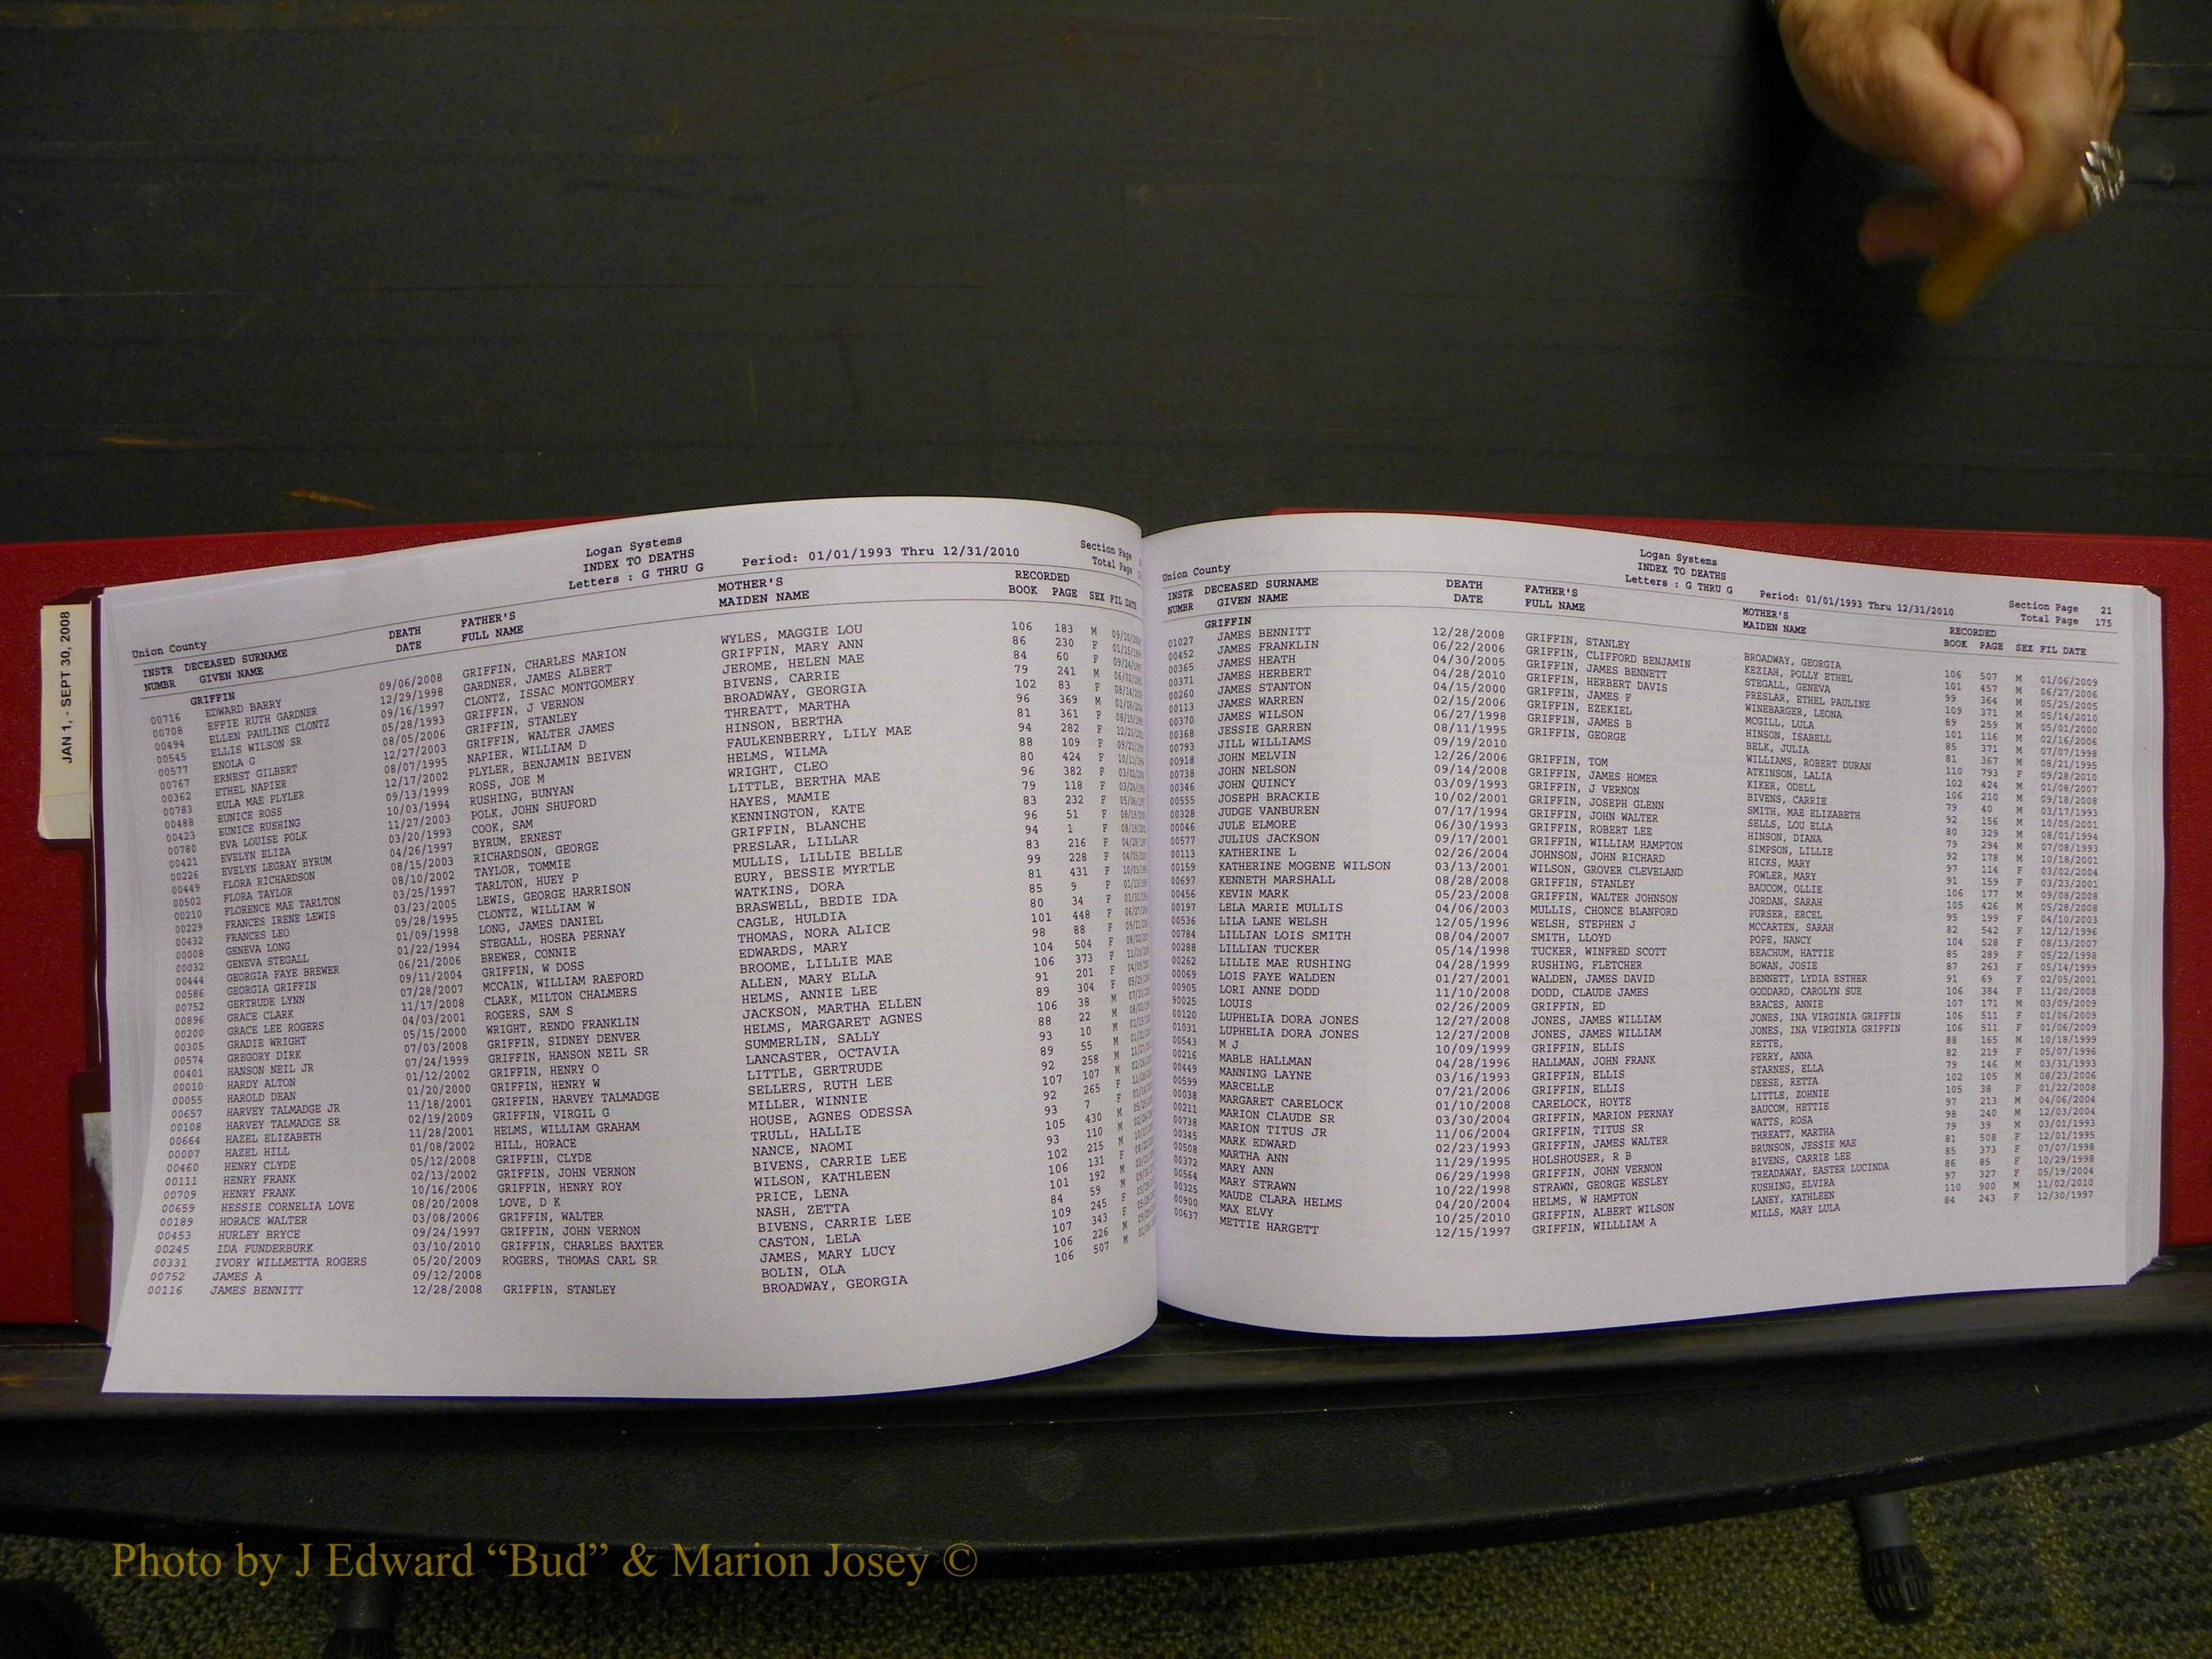 JAN 1, - SEPT 30, 2008
Logan Systems
INDEX TO DEATHS
Letters : G THRU G Period: 01/01/1993 Thru 12/31/2010 Section Page
Union County Total Page
INSTR DECEASED SURNAME DEATH FATHER'S MOTHER'S RECORDED
NUMBR GIVEN NAME DATE FULL NAME MAIDEN NAME BOOK PAGE SEX FIL DATE
GRIFFIN
00716 EDWARD BARRY 09/06/2008 GRIFFIN, CHARLES MARION WYLES, MAGGIE LOU 106 183 M
00708 EFFIE RUTH GARDNER 12/29/1998 GARDNER, JAMES ALBERT GRIFFIN, MARY ANN 86 230 F
00494 ELLEN PAULINE CLONTZ 09/16/1997 CLONTZ, ISSAC MONTGOMERY JEROME, HELEN MAE 84 60 F
00545 ELLIS WILSON SR 05/28/1993 GRIFFIN, J VERNON BIVENS, CARRIE 79 241 M
00577 ENOLA G 08/05/2006 GRIFFIN, STANLEY BROADWAY, GEORGIA 102 83 F
00767 ERNEST GILBERT 12/27/2003 GRIFFIN, WALTER JAMES THREATT, MARTHA 96 369 M
00362 ETHEL NAPIER 08/07/1995 NAPIER, WILLIAM D HINSON, BERTHA 81 361 F
00783 EULA MAE PLYLER 12/17/2002 PLYLER, BENJAMIN BEIVEN FAULKENBERRY, LILY MAE 94 282 F
00488 EUNICE ROSS 09/13/1999 ROSS, JOE M HELMS, WILMA 88 109 F
00423 EUNICE RUSHING 10/03/1994 RUSHING, BUNYAN WRIGHT, CLEO 80 424 F
00780 EVA LOUISE POLK 11/27/2003 POLK, JOHN SHUFORD LITTLE, BERTHA MAE 96 382 F
00421 EVELYN ELIZA 03/20/1993 COOK, SAM HAYES, MAMIE 79 118 F
00226 EVELYN LEGRAY BYRUM 04/26/1997 BYRUM, ERNEST KENNINGTON, KATE 83 232 F
00449 FLORA RICHARDSON 08/15/2003 RICHARDSON, GEORGE GRIFFIN, BLANCHE 96 51 F
00502 FLORA TAYLOR 08/10/2002 TAYLOR, TOMMIE PRESLAR, LILLAR 94 1 F
00210 FLORENCE MAE TARLTON 03/25/1997 TARLTON, HUEY P MULLIS, LILLIE BELLE 83 216 F
00229 FRANCES IRENE LEWIS 03/23/2005 LEWIS, GEORGE HARRISON EURY, BESSIE MYRTLE 99 228 F
00432 FRANCES LEO 09/28/1995 CLONTZ, WILLIAM W WATKINS, DORA 81 431 F
00008 GENEVA LONG 01/09/1998 LONG, JAMES DANIEL BRASWELL, BEDIE IDA 85 9 F
00032 GENEVA STEGALL 01/22/1994 STEGALL, HOSEA PERNAY CAGLE, HULDIA 80 34 F
00444 GEORGIA FAYE BREWER 06/21/2006 BREWER, CONNIE THOMAS, NORA ALICE 101 448 F
00586 GEORGIA GRIFFIN 09/11/2004 GRIFFIN, W DOSS EDWARDS, MARY 98 88 F
00752 GERTRUDE LYNN 07/28/2007 MCCAIN, WILLIAM RAEFORD BROOME, LILLIE MAE 104 504 F
00896 GRACE CLARK 11/17/2008 CLARK, MILTON CHALMERS ALLEN, MARY ELLA 106 373 F
00200 GRACE LEE ROGERS 04/03/2001 ROGERS, SAM S HELMS, ANNIE LEE 91 201 F
00305 GRADIE WRIGHT 05/15/2000 WRIGHT, RENDO FRANKLIN JACKSON, MARTHA ELLEN 89 304 F
00574 GREGORY DIRK 07/03/2008 GRIFFIN, SIDNEY DENVER HELMS, MARGARET AGNES 106 38 M
00401 HANSON NEIL JR 07/24/1999 GRIFFIN, HANSON NEIL SR SUMMERLIN, SALLY 88 22 M
00010 HARDY ALTON 01/12/2002 GRIFFIN, HENRY O LANCASTER, OCTAVIA 93 10 M
00055 HAROLD DEAN 01/20/2000 GRIFFIN, HENRY W LITTLE, GERTRUDE 89 55 M
00657 HARVEY TALMADGE JR 11/18/2001 GRIFFIN, HARVEY TALMADGE SELLERS, RUTH LEE 92 258 M
00108 HARVEY TALMADGE SR 02/19/2009 GRIFFIN, VIRGIL G MILLER, WINNIE 107 107 M
00664 HAZEL ELIZABETH 11/28/2001 HELMS, WILLIAM GRAHAM HOUSE, AGNES ODESSA 92 265 F
00007 HAZEL HILL 01/08/2002 HILL, HORACE TRULL, HALLIE 93 7 F
00460 HENRY CLYDE 05/12/2008 GRIFFIN, CLYDE NANCE, NAOMI 105 430 M
00111 HENRY FRANK 02/13/2002 GRIFFIN, JOHN VERNON BIVENS, CARRIE LEE 93 110 M
00709 HENRY FRANK 10/16/2006 GRIFFIN, HENRY ROY WILSON, KATHLEEN 102 215 M
00659 HESSIE CORNELIA LOVE 08/20/2008 LOVE, D K PRICE, LENA 106 131 F
00189 HORACE WALTER 03/08/2006 GRIFFIN, WALTER NASH, ZETTA 101 192 M
00453 HURLEY BRYCE 09/24/1997 GRIFFIN, JOHN VERNON BIVENS, CARRIE LEE 84 59 M
00245 IDA FUNDERBURK 03/10/2010 GRIFFIN, CHARLES BAXTER CASTON, LELA 109 245 F
00331 IVORY WILLMETTA ROGERS 05/20/2009 ROGERS, THOMAS CARL SR JAMES, MARY LUCY 107 343 F
00752 JAMES A 09/12/2008 BOLIN, OLA 106 226 M
00116 JAMES BENNITT 12/28/2008 GRIFFIN, STANLEY BROADWAY, GEORGIA 106 507 M
Logan Systems
INDEX TO DEATHS
Union County Letters : G THRU G Period: 01/01/1993 Thru 12/31/2010 Section Page 21
Total Page 175
INSTR DECEASED SURNAME DEATH FATHER'S MOTHER'S RECORDED
NUMBR GIVEN NAME DATE FULL NAME MAIDEN NAME BOOK PAGE SEX FIL DATE
GRIFFIN
01027 JAMES BENNITT 12/28/2008 GRIFFIN, STANLEY BROADWAY, GEORGIA 106 507 M 01/06/2009
00452 JAMES FRANKLIN 06/22/2006 GRIFFIN, CLIFFORD BENJAMIN KEZIAH, POLLY ETHEL 101 457 M 06/27/2006
00365 JAMES HEATH 04/30/2005 GRIFFIN, JAMES BENNETT STEGALL, GENEVA 99 364 M 05/25/2005
00371 JAMES HERBERT 04/28/2010 GRIFFIN, HERBERT DAVIS PRESLAR, ETHEL PAULINE 109 371 M 05/14/2010
00260 JAMES STANTON 04/15/2000 GRIFFIN, JAMES F WINEBARGER, LEONA 89 259 M 05/01/2000
00113 JAMES WARREN 02/15/2006 GRIFFIN, EZEKIEL MCGILL, LULA 101 116 M 02/16/2006
00370 JAMES WILSON 06/27/1998 GRIFFIN, JAMES B HINSON, ISABELL 85 371 M 07/07/1998
00368 JESSIE GARREN 08/11/1995 GRIFFIN, GEORGE BELK, JULIA 81 367 M 08/21/1995
00793 JILL WILLIAMS 09/19/2010 WILLIAMS, ROBERT DURAN 110 793 F 09/28/2010
00918 JOHN MELVIN 12/26/2006 GRIFFIN, TOM ATKINSON, LALIA 102 424 M 01/08/2007
00738 JOHN NELSON 09/14/2008 GRIFFIN, JAMES HOMER KIKER, ODELL 106 210 M 09/18/2008
00346 JOHN QUINCY 03/09/1993 GRIFFIN, J VERNON BIVENS, CARRIE 79 40 M 03/17/1993
00555 JOSEPH BRACKIE 10/02/2001 GRIFFIN, JOSEPH GLENN SMITH, MAE ELIZABETH 92 156 M 10/05/2001
00328 JUDGE VANBUREN 07/17/1994 GRIFFIN, JOHN WALTER SELLS, LOU ELLA 80 329 M 08/01/1994
00046 JULE ELMORE 06/30/1993 GRIFFIN, ROBERT LEE HINSON, DIANA 79 294 M 07/08/1993
00577 JULIUS JACKSON 09/17/2001 GRIFFIN, WILLIAM HAMPTON SIMPSON, LILLIE 92 178 M 10/18/2001
00113 KATHERINE L 02/26/2004 JOHNSON, JOHN RICHARD HICKS, MARY 97 114 F 03/02/2004
00159 KATHERINE MOGENE WILSON 03/13/2001 WILSON, GROVER CLEVELAND FOWLER, MARY 91 159 F 03/23/2001
00697 KENNETH MARSHALL 08/28/2008 GRIFFIN, STANLEY BAUCOM, OLLIE 106 177 M 09/08/2008
00456 KEVIN MARK 05/23/2008 GRIFFIN, WALTER JOHNSON JORDAN, SARAH 105 426 M 05/28/2008
00197 LELA MARIE MULLIS 04/06/2003 MULLIS, CHONCE BLANFORD PURSER, ERCEL 95 199 F 04/10/2003
00536 LILA LANE WELSH 12/05/1996 WELSH, STEPHEN J MCCARTEN, SARAH 82 542 F 12/12/1996
00784 LILLIAN LOIS SMITH 08/04/2007 SMITH, LLOYD POPE, NANCY 104 528 F 08/13/2007
00288 LILLIAN TUCKER 05/14/1998 TUCKER, WINFRED SCOTT BEACHUM, HATTIE 85 289 F 05/22/1998
00262 LILLIE MAE RUSHING 04/28/1999 RUSHING, FLETCHER BOWAN, JOSIE 87 263 F 05/14/1999
00069 LOIS FAYE WALDEN 01/27/2001 WALDEN, JAMES DAVID BENNETT, LYDIA ESTHER 91 69 F 02/05/2001
00905 LORI ANNE DODD 11/10/2008 DODD, CLAUDE JAMES GODDARD, CAROLYN SUE 106 384 F 11/20/2008
90025 LOUIS 02/26/2009 GRIFFIN, ED BRACES, ANNIE 107 171 M 03/09/2009
00120 LUPHELIA DORA JONES 12/27/2008 JONES, JAMES WILLIAM JONES, INA VIRGINIA GRIFFIN 106 511 F 01/06/2009
01031 LUPHELIA DORA JONES 12/27/2008 JONES, JAMES WILLIAM JONES, INA VIRGINIA GRIFFIN 106 511 F 01/06/2009
00543 M J 10/09/1999 GRIFFIN, ELLIS RETTE, 88 165 M 10/18/1999
00216 MABLE HALLMAN 04/28/1996 HALLMAN, JOHN FRANK PERRY, ANNA 82 219 F 05/07/1996
00449 MANNING LAYNE 03/16/1993 GRIFFIN, ELLIS STARNES, ELLA 79 146 M 03/31/1993
00599 MARCELLE 07/21/2006 GRIFFIN, ELLIS DEESE, RETTA 102 105 M 08/23/2006
00038 MARGARET CARELOCK 01/10/2008 CARELOCK, HOYTE LITTLE, ZOHNIE 105 38 F 01/22/2008
00211 MARION CLAUDE SR 03/30/2004 GRIFFIN, MARION PERNAY BAUCOM, HETTIE 97 213 M 04/06/2004
00738 MARION TITUS JR 11/06/2004 GRIFFIN, TITUS SR WATTS, ROSA 98 240 M 12/03/2004
00345 MARK EDWARD 02/23/1993 GRIFFIN, JAMES WALTER THREATT, MARTHA 79 39 M 03/01/1993
00508 MARTHA ANN 11/29/1995 HOLSHOUSER, R B BRUNSON, JESSIE MAE 81 508 F 12/01/1995
00372 MARY ANN 06/29/1998 GRIFFIN, JOHN VERNON BIVENS, CARRIE LEE 85 373 F 07/07/1998
00564 MARY STRAWN 10/22/1998 STRAWN, GEORGE WESLEY TREADAWAY, EASTER LUCINDA 86 85 F 10/29/1998
00325 MAUDE CLARA HELMS 04/20/2004 HELMS, W HAMPTON RUSHING, ELVIRA 97 327 F 05/19/2004
00900 MAX ELVY 10/25/2010 GRIFFIN, ALBERT WILSON LANEY, KATHLEEN 110 900 M 11/02/2010
00637 METTIE HARGETT 12/15/1997 GRIFFIN, WILLLIAM A MILLS, MARY LULA 84 243 F 12/30/1997
Photo by J Edward “Bud” & Marion Josey ©